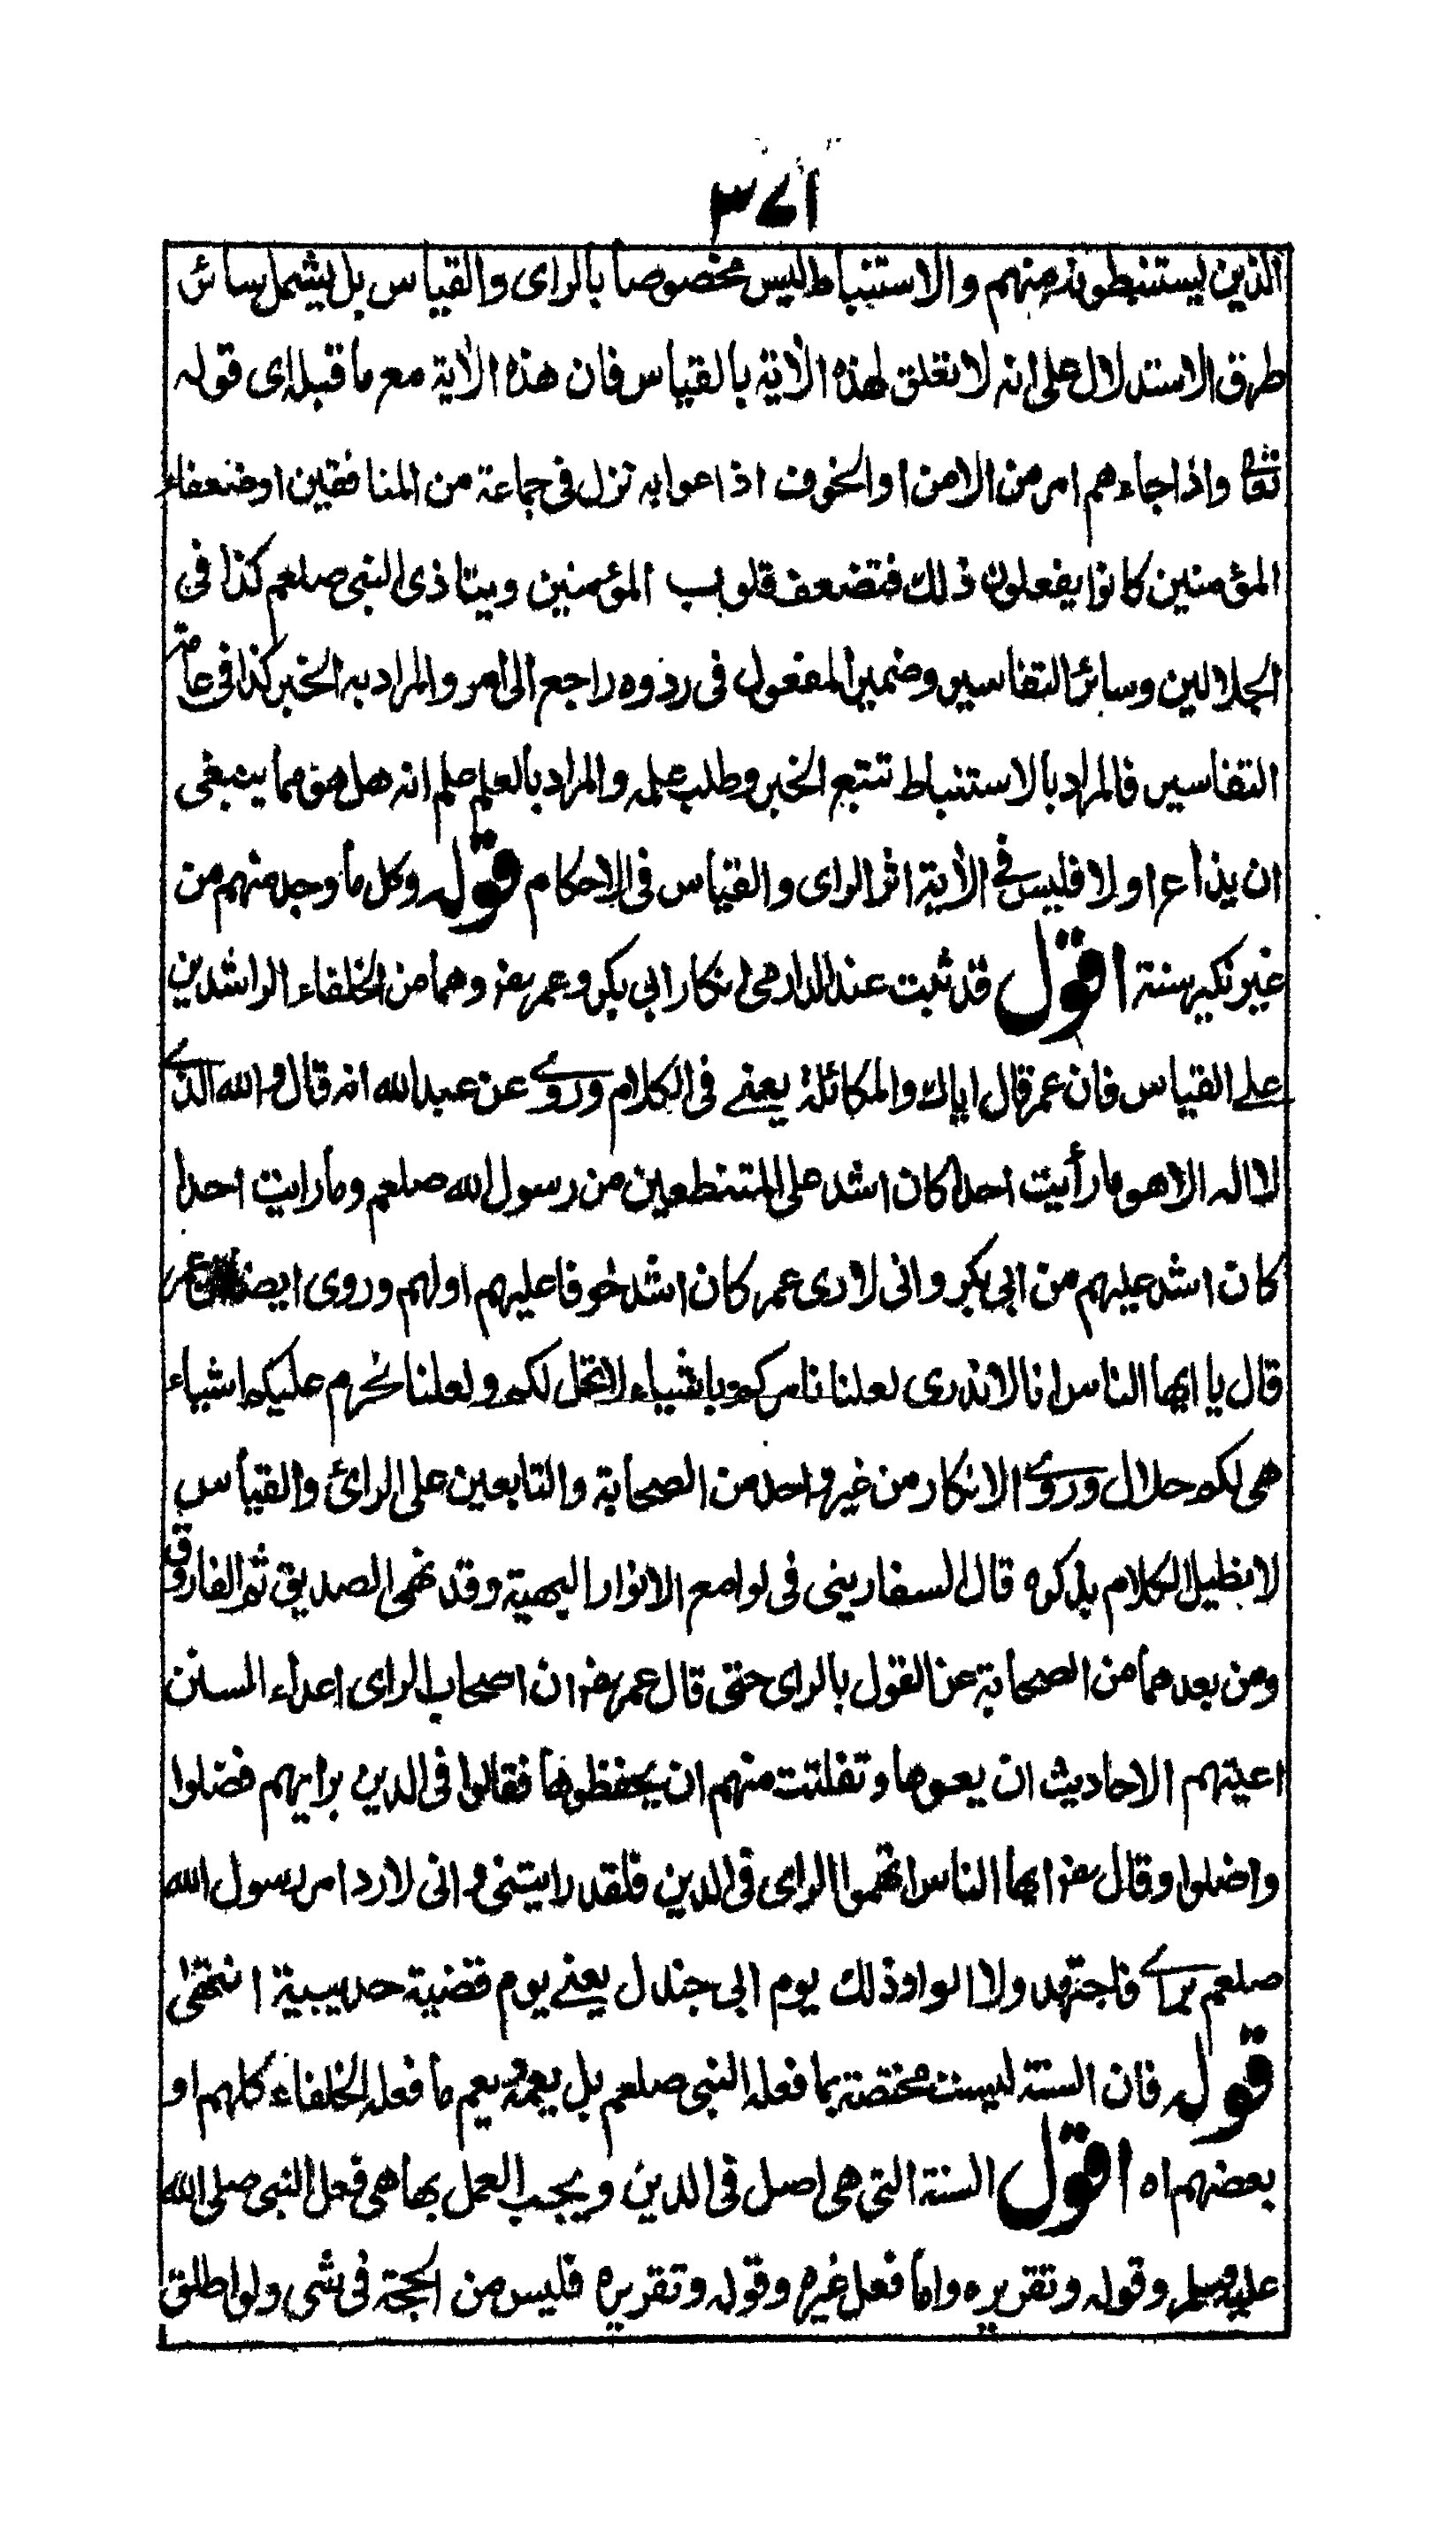 ٣٧١
الذين يستنبطونه منهم والاستنباط ليس مخصوصا بالراى والقياس بل يشمل سائر
طرق الاستدلال على انه لا تعلق لهذه الاٰية بالقياس فان هذه الاٰية مع ما قبله اى قوله
تعالى واذا جاءهم امر من الامن او الخوف اذاعوا به نزل فى جماعة من المنافقين او ضعفاء
المؤمنين كانوا يفعلون ذلك فتضعف قلوب المؤمنين ويتاذى النبى صلعم كذا فى
الجلالين وسائر التفاسير وضمير المفعول فى ردوه راجع الى امر والمراد به الخبر كذا فى عامة
التفاسير فالمراد بالاستنباط تتبع الخبر وطلب علمه والمراد بالعلم علم انه هل هو مما ينبغى
ان يذاع او لا فليس فى الاٰية اثر الراى والقياس فى الاحكام قوله وكل ما وجد منهم من
غير نكير سنة اقول قد ثبت عند الدارمى انكار ابى بكر وعمر رضـ وهما من الخلفاء الراشدين
على القياس فان عمر قال اياك والمكائلة يعنے فى الكلام وروے عن عبد الله انه قال والله الذے
لا اله الا هو ما رأيت احدا كان اشد على المتنطعين من رسول الله صلعم وما رايت احدا
كان اشد عليهم من ابى بكر وانى لارى عمر كان اشد خوفا عليهم او لهم وروى ايضا عن عمر
قال يا ايها الناس انا لا ندرى لعلنا نامركم باشياء لا تحل لكم ولعلنا نحرم عليكم اشياء
هى لكم حلال وروے الانكار من غير واحد من الصحابة والتابعين على الرائ والقياس
لا نطيل الكلام بذكره قال السفارينى فى لوامع الانوار البهية وقد نهى الصديق ثم الفاروق
ومن بعدهما من الصحابة عن القول بالراى حتى قال عمر رضـ ان اصحاب الراى اعداء السنن
اعيتهم الاحاديث ان يعوها وتفلتت منهم ان يحفظوها فقالوا فى الدين برايهم فضلوا
واضلوا وقال رضـ ايها الناس اتهموا الراى فى الدين فلقد رايتنى وانى لارد امر رسول الله
صلعم براے فاجتهد ولا الوا وذلك يوم ابى جندل يعنے يوم قضية حديبية انتهٰى
قوله فان السنة ليست مختصة بما فعله النبى صلعم بل يعمه ويعم ما فعله الخلفاء كلهم او
بعضهم اه اقول السنة التى هى اصل فى الدين ويجب العمل بها هى فعل النبى صلى الله
عليه وسلم وقوله وتقريره واما فعل غيره وقوله وتقريره فليس من الحجة فى شى ولو اطلق